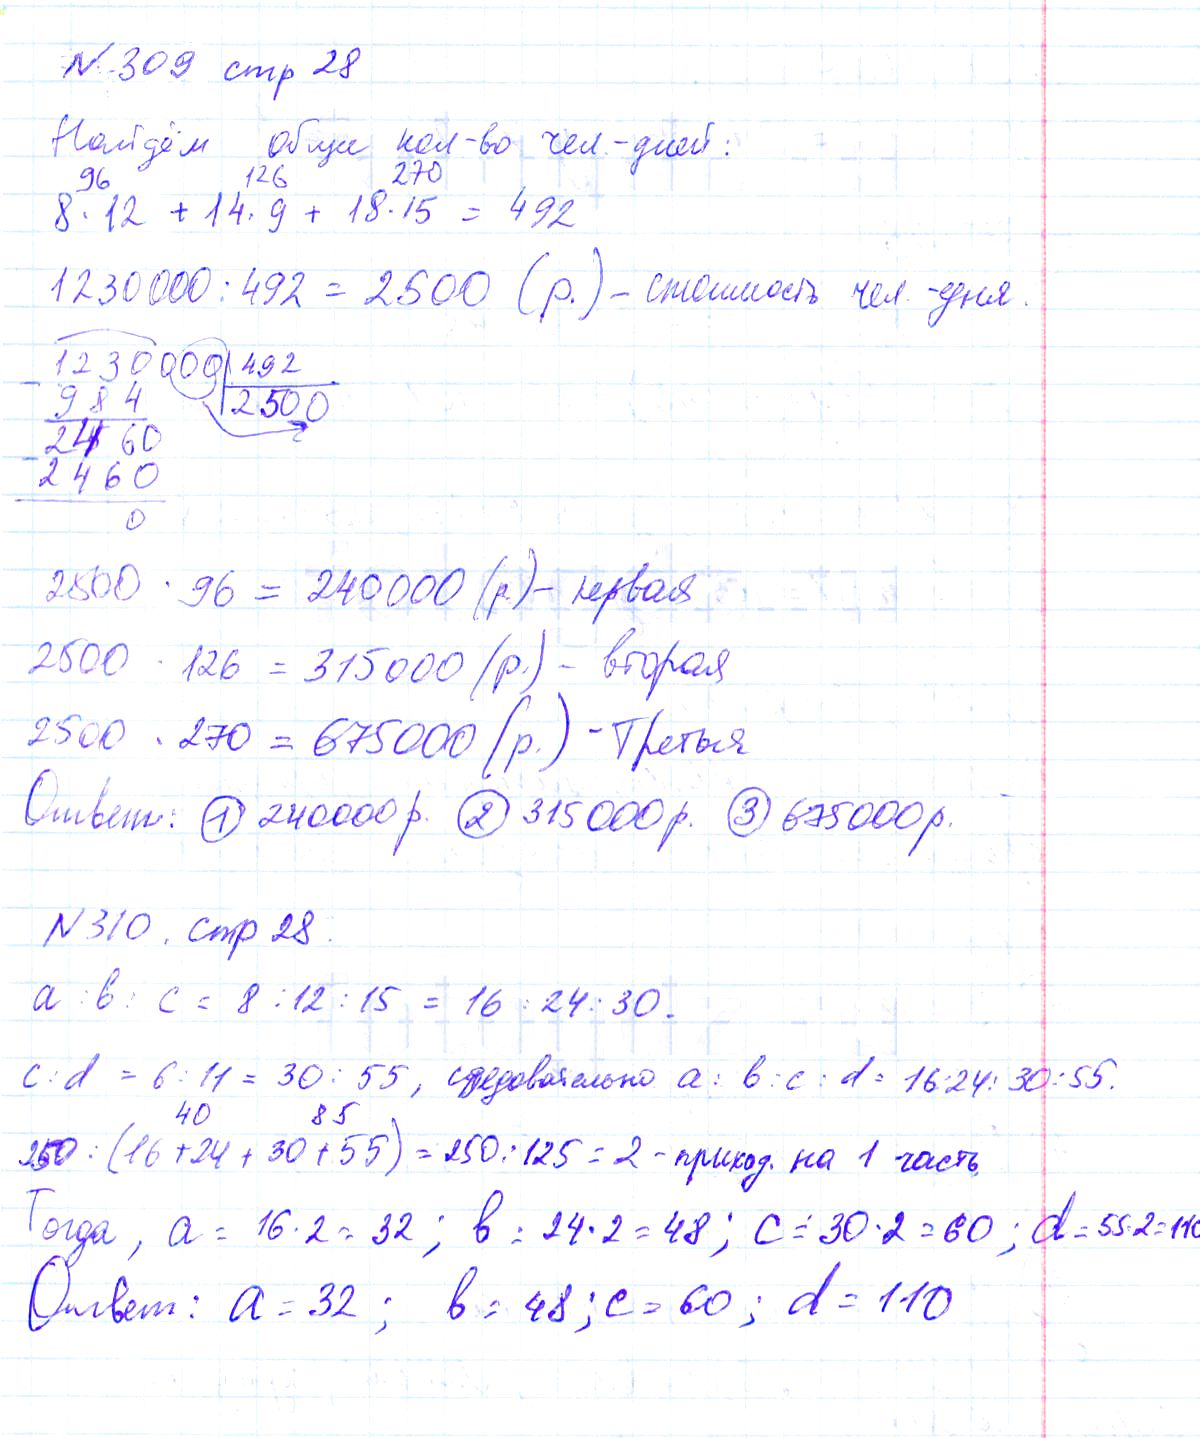 N 309 стр 28
Найдём общее кол-во чел.-дней:
96 126 270
8·12 + 14·9 + 18·15 = 492
1230000:492 = 2500 (р.) – стоимость чел.-дня.
1230000 | 492
- 984 | 2500
2460
- 2460
0
2500 · 96 = 240000 (р.) – первая
2500 · 126 = 315000 (р.) – вторая
2500 · 270 = 675000 (р.) – Третья
Ответ: ① 240000р. ② 315000р. ③ 675000р.
N 310. стр 28.
a : b : c = 8 : 12 : 15 = 16 : 24 : 30.
c : d = 6 : 11 = 30 : 55, следовательно a : b : c : d = 16:24:30:55.
40 85
250 : (16 + 24 + 30 + 55) = 250 : 125 = 2 – приход. на 1 часть
Тогда, a = 16·2 = 32; b = 24·2 = 48; c = 30·2 = 60; d = 55·2 = 110
Ответ: a = 32; b = 48; c = 60; d = 110